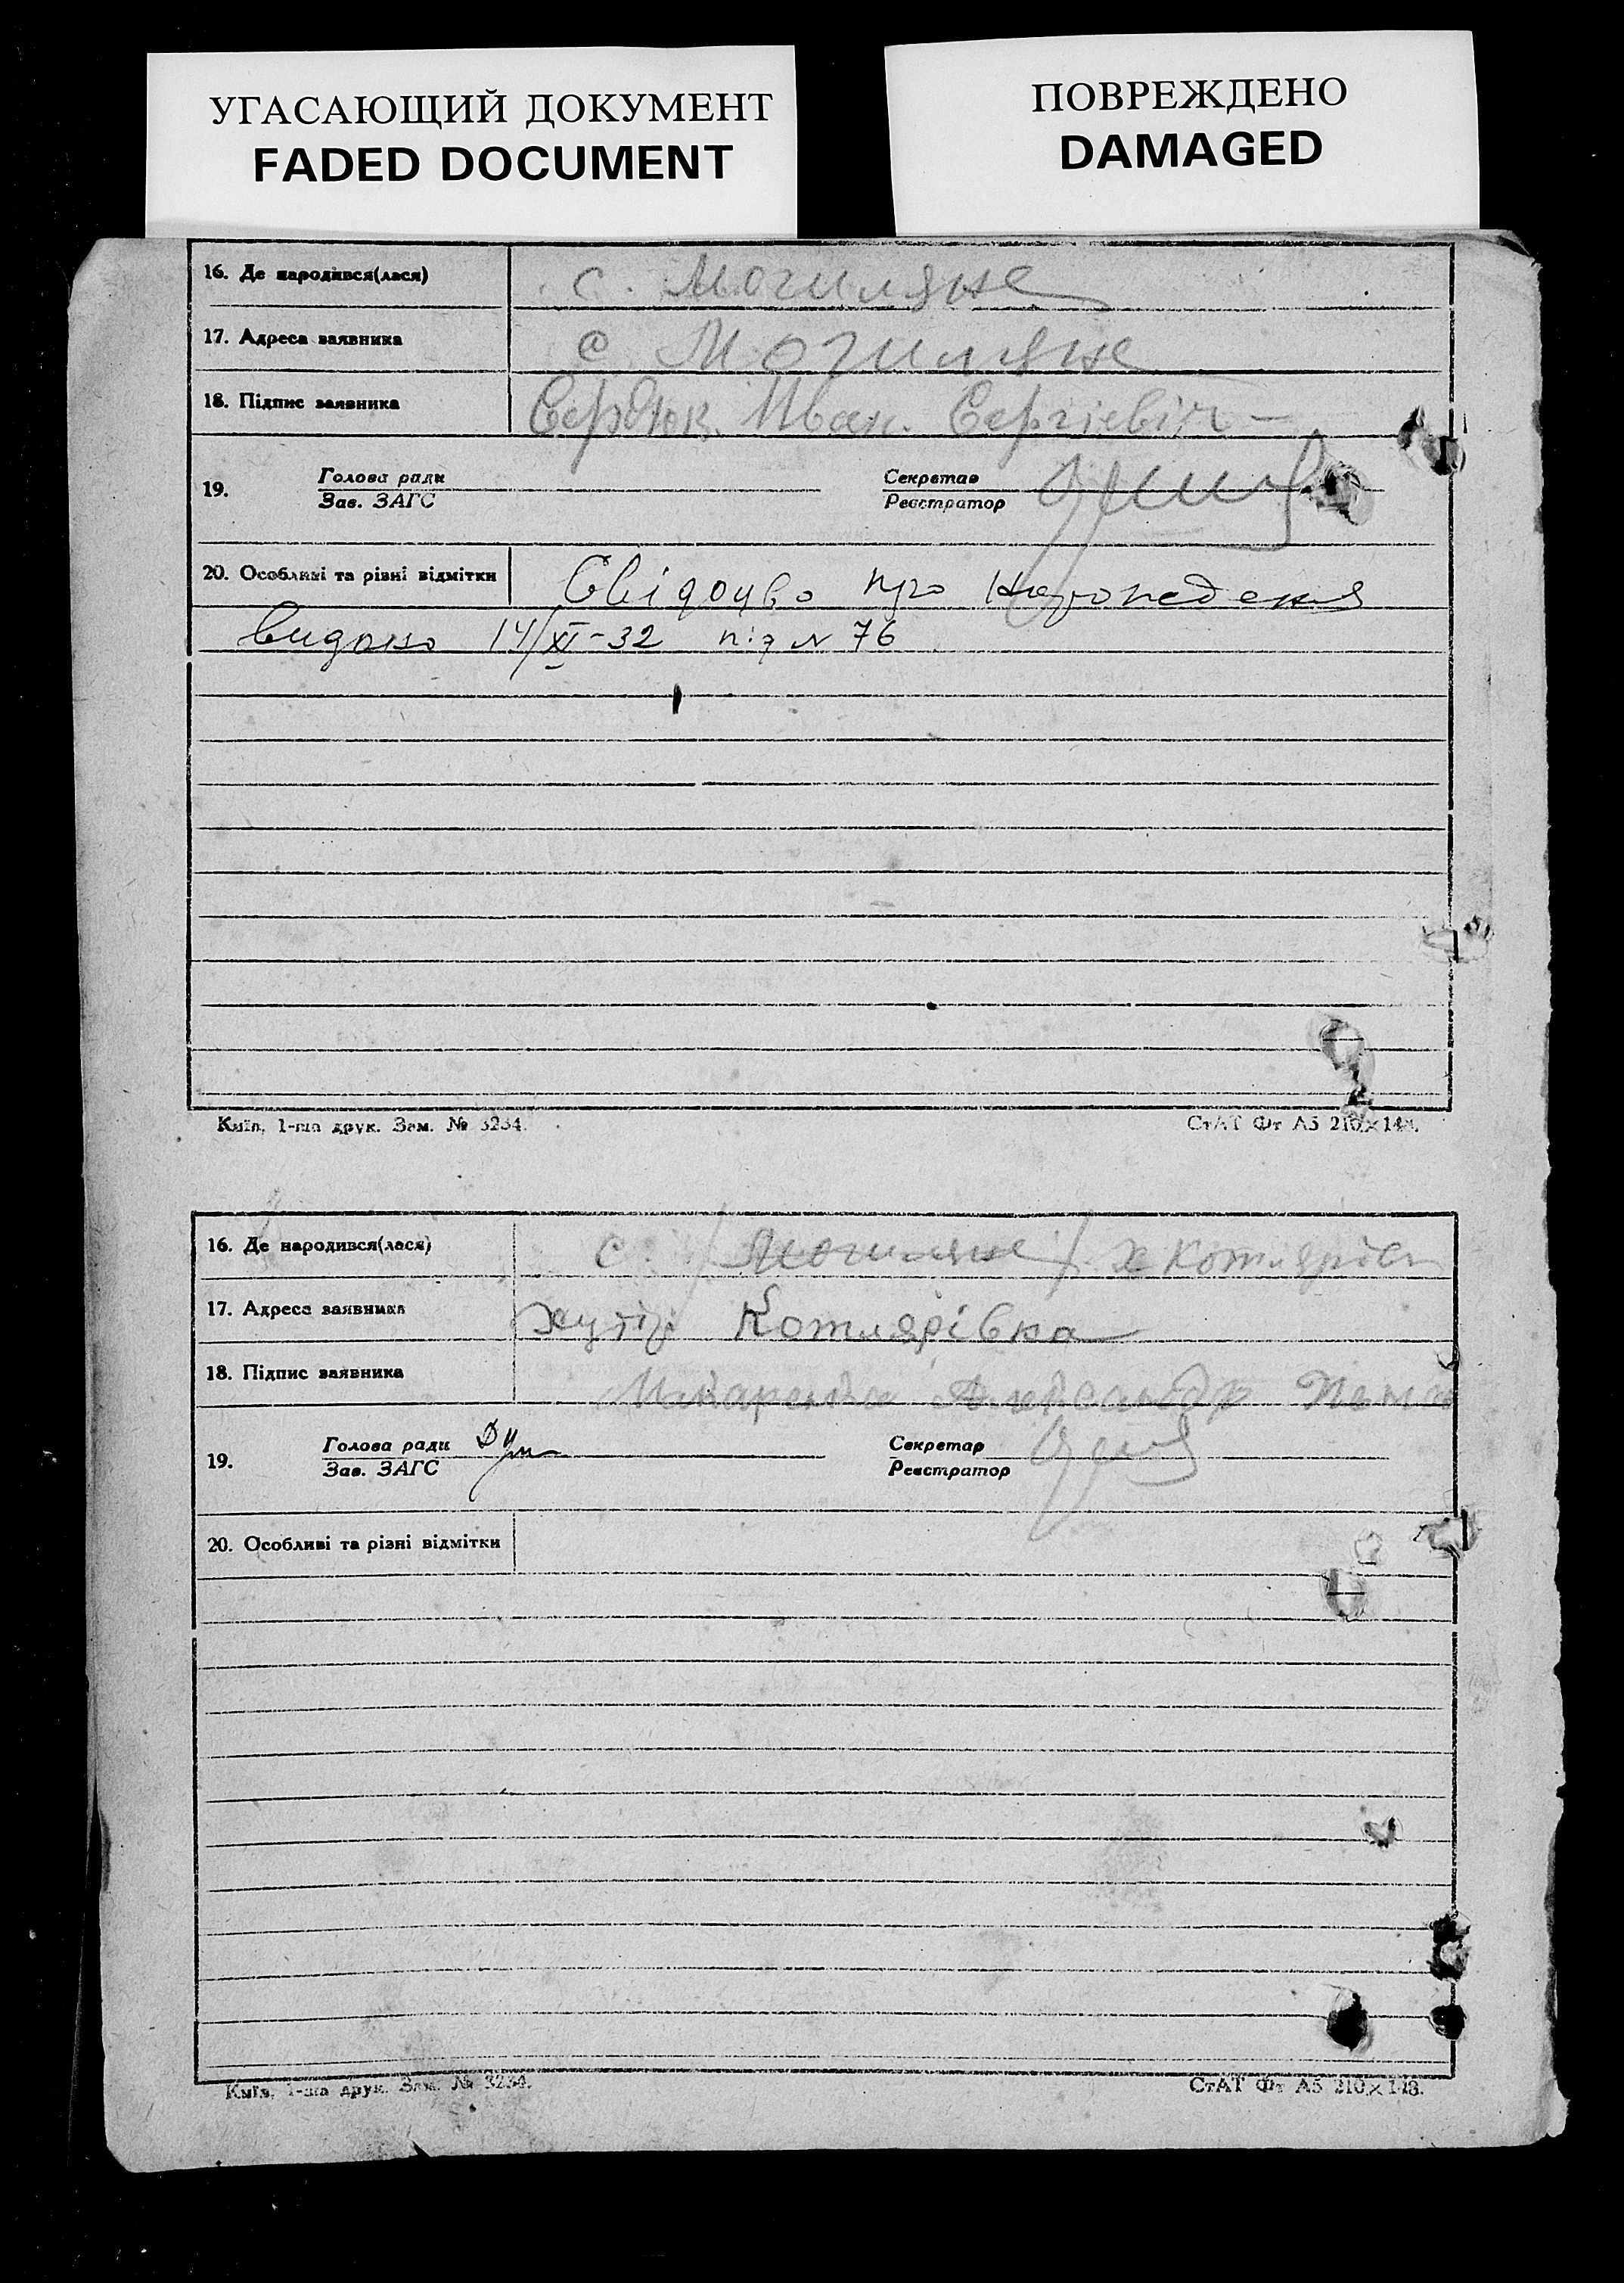 УГАСАЮЩИЙ ДОКУМЕНТ
FADED DOCUMENT
ПОВРЕЖДЕНО
DAMAGED
16. Де народився(лася) с. Могиляне
17. Адреса заявника с. Могиляне
18. Підпис заявника Сердюк Иван. Сергіевіч
19. Голова ради Секретар
Зав. ЗАГС Реєстратор
20. Особливі та різні відмітки Свідоцво про народження
видано 14/XI-32 під № 76
Київ, 1-ша друк. Зам. № 3234.
СтАТ Фт А5 210×148.
16. Де народився(лася) с. /Могиляне/ х Котлярівк
17. Адреса заявника хутір Котлярівка
18. Підпис заявника Александр
19. Голова ради Секретар
Зав. ЗАГС Реєстратор
20. Особливі та різні відмітки
Київ, 1-ша друк. Зам. № 3234.
СтАТ Фт А5 210×148.